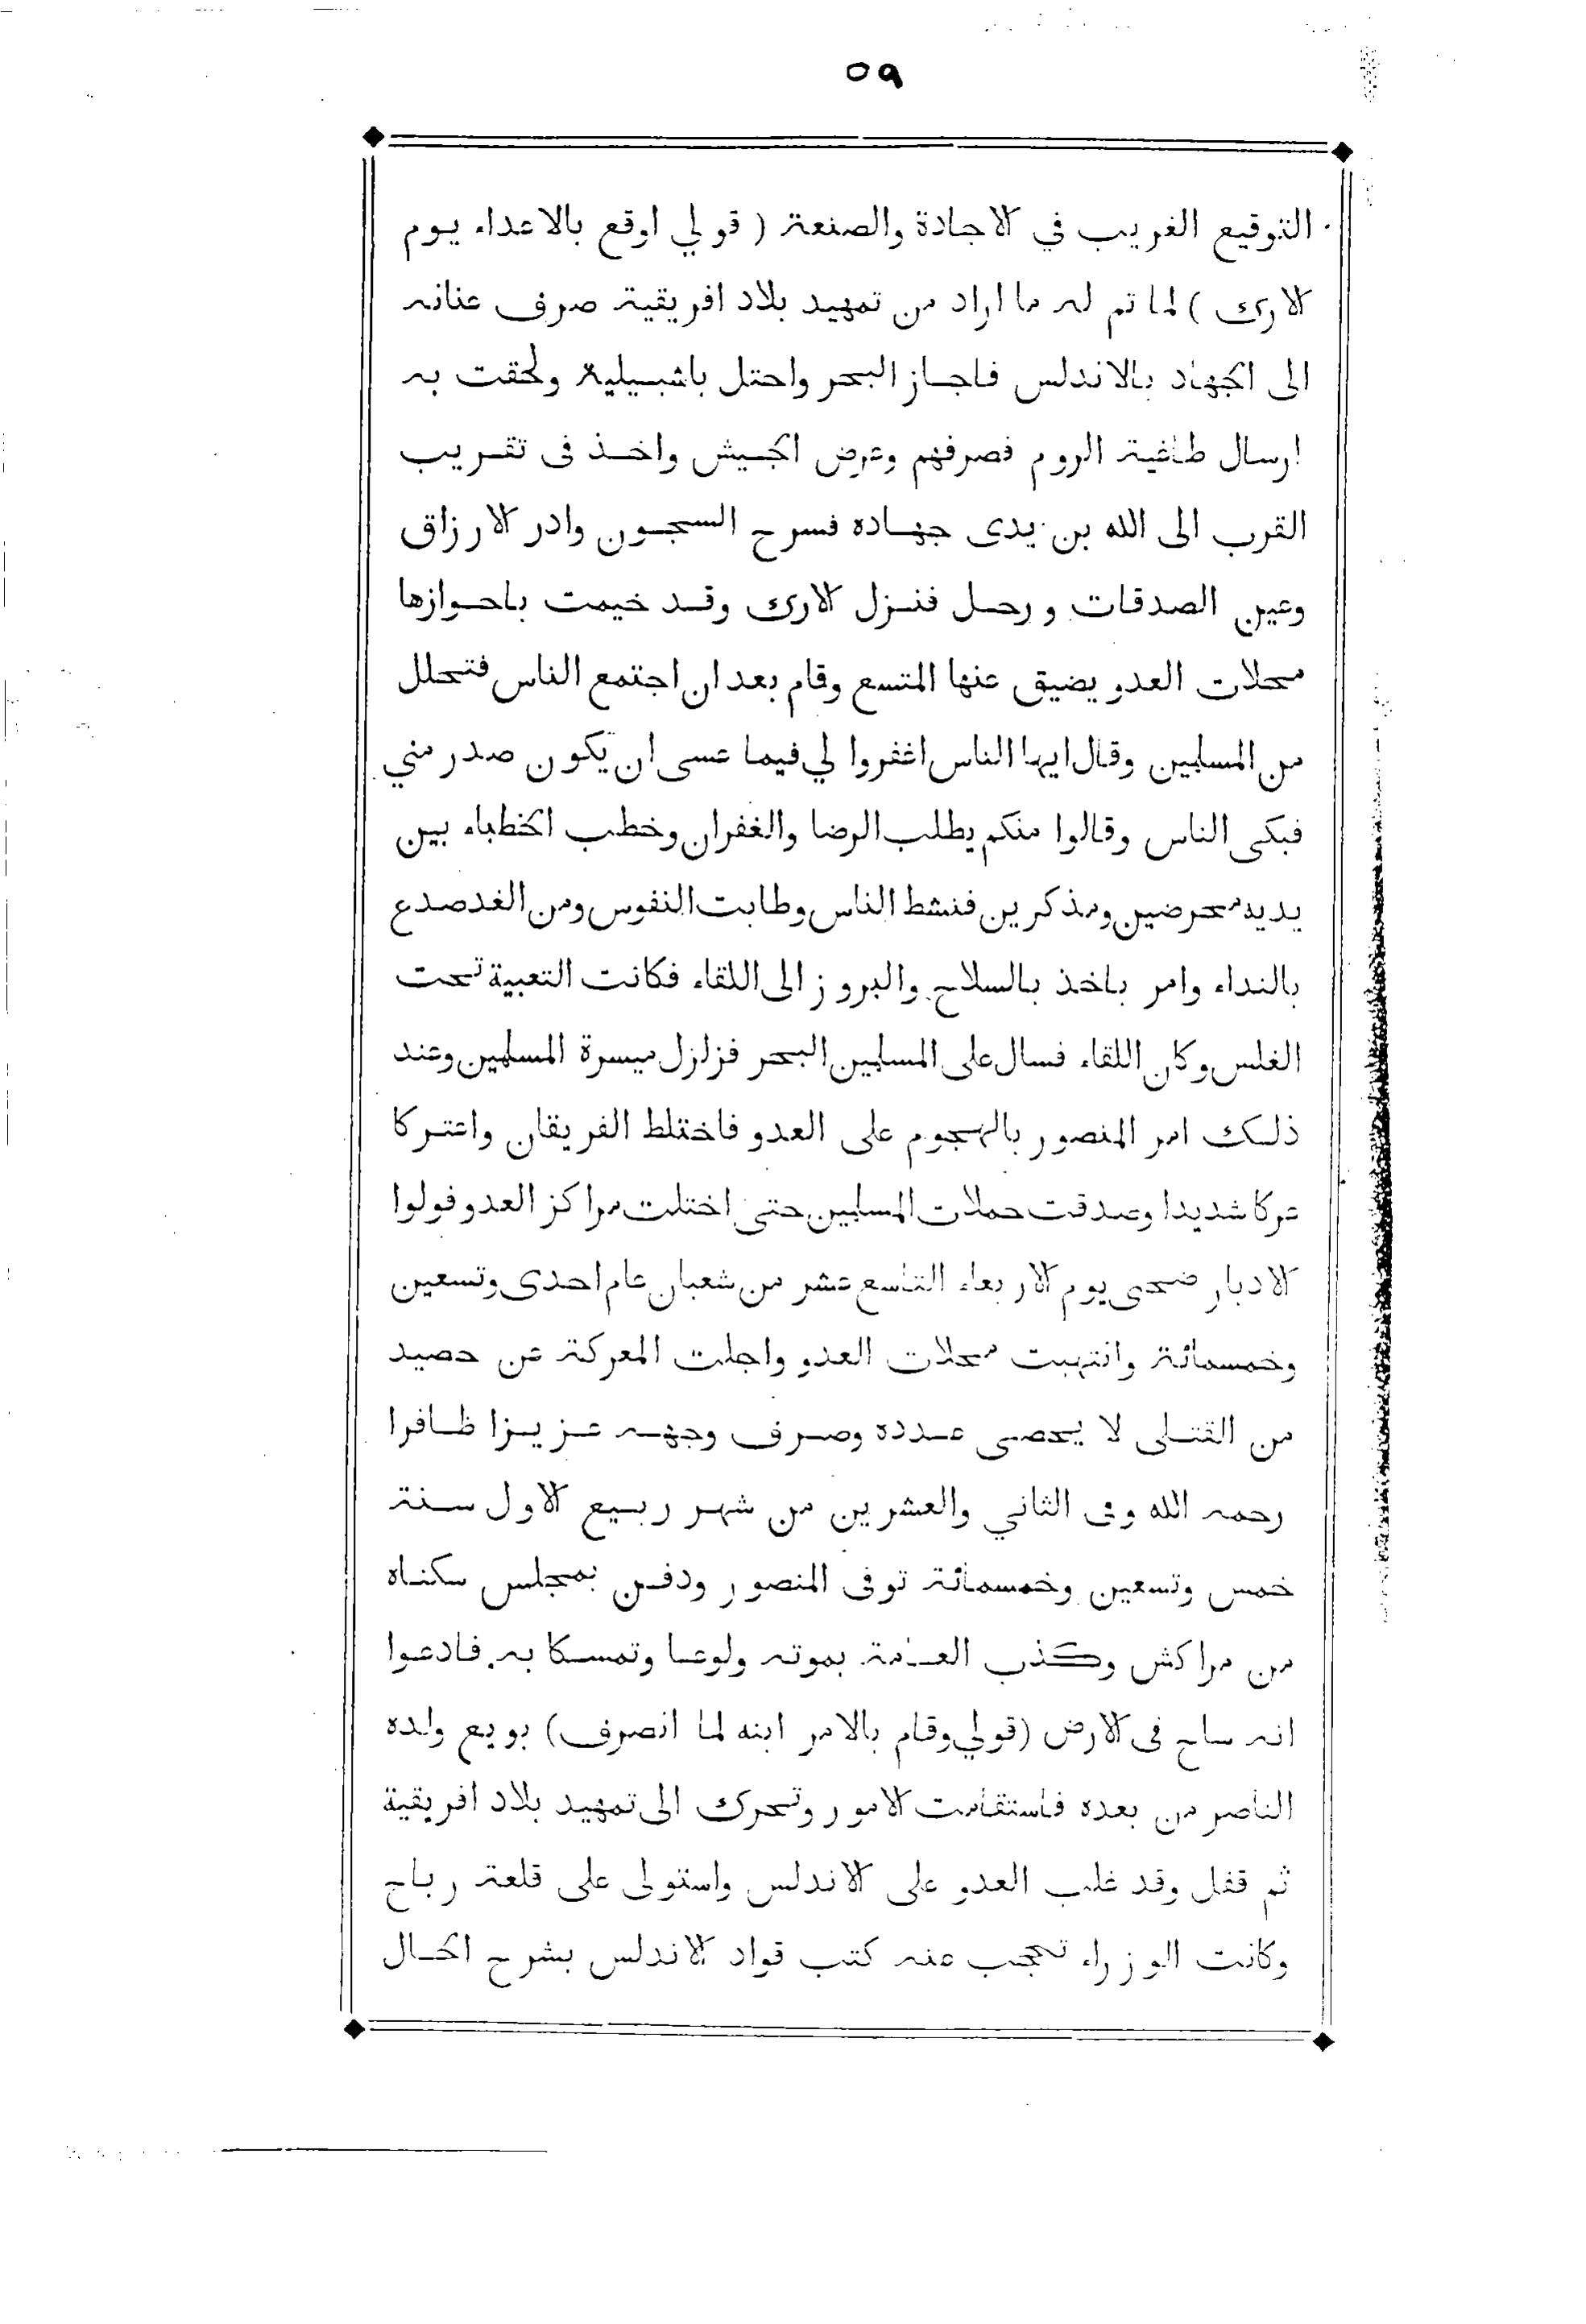 ٥٩
التوقيع الغريب في الاجادة والصنعة ( قولي اوقع بالاعداء يوم
الارك ) لما تم له ما اراد من تمهيد بلاد افريقية صرف عنانه
الى الجهاد بالاندلس فاجاز البحر واحتل باشبيلية ولحقت به
ارسال طاغية الروم فصرفهم وعرض الجيش واخذ فى تقريب
القرب الى الله بن يدى جهاده فسرح السجون وادر الارزاق
وعين الصدقات ورحل فنزل الارك وقد خيمت باحوازها
محلات العدو يضيق عنها المتسع وقام بعد ان اجتمع الناس فتحلل
من المسلمين وقال ايها الناس اغفروا لي فيما عسى ان يكون صدر مني
فبكى الناس وقالوا منكم يطلب الرضا والغفران وخطب الخطباء بين
يديه محرضين ومذكرين فنشط الناس وطابت النفوس ومن الغد صدع
بالنداء وامر باخذ بالسلاح والبروز الى اللقاء فكانت التعبية تحت
الغلس وكان اللقاء فسال على المسلمين البحر فزلزل ميسرة المسلمين وعند
ذلك امر المنصور بالهجوم على العدو فاختلط الفريقان واعتركا
عركا شديدا وصدقت حملات المسلمين حتى اختلت مراكز العدو فولوا
الادبار ضحى يوم الاربعاء التاسع عشر من شعبان عام احدى وتسعين
وخمسمائة وانتهبت محلات العدو واجلت المعركة عن حصيد
من القتلى لا يحصى عدده وصرف وجهه عزيزا ظافرا
رحمه الله وفى الثاني والعشرين من شهر ربيع الاول سنة
خمس وتسعين وخمسمائة توفى المنصور ودفن بمجلس سكناه
من مراكش وكذب العامة بموته ولوعا وتمسكا به فادعوا
انه ساح فى الارض (قولي وقام بالامر ابنه لما انصرف) بويع ولده
الناصر من بعده فاستقامت الامور وتحرك الى تمهيد بلاد افريقية
ثم قفل وقد غلب العدو على الاندلس واستولى على قلعة رباح
وكانت الوزراء تحجب عنه كتب قواد الاندلس بشرح الحال